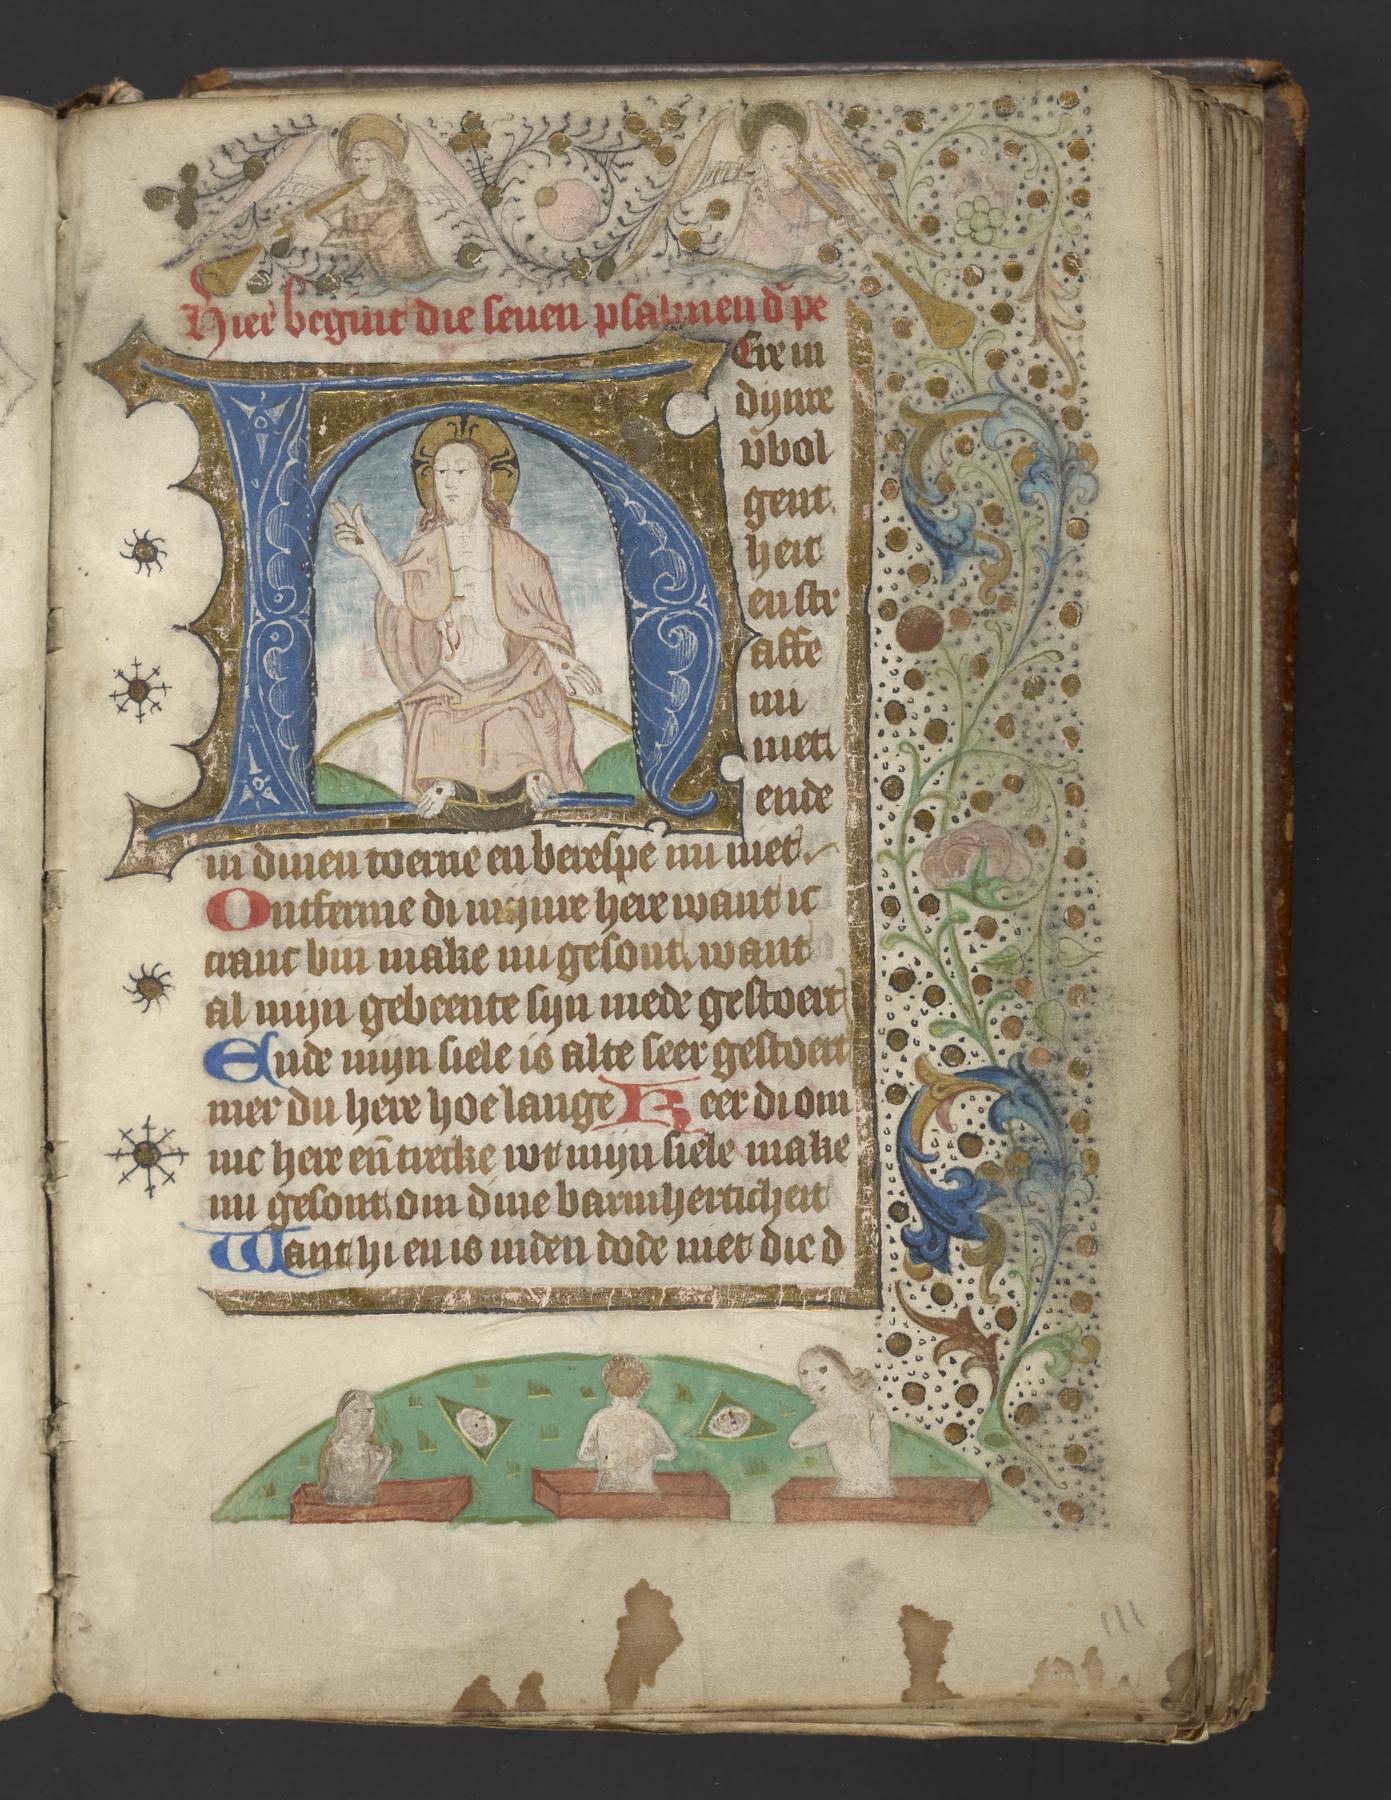 Hier begint die seuen psalmen d̄ pe
Ere in
dijnre
v̄bol
gent
heit
en str
affe
mi
niet
ende
in dinen toerne en berespe mi niet
Ontferme di mijnre here want ic
cranc bin make mi gesont want
al mijn gebeente sijn mede gestoert
Ende mijn siele is alte seer gestoert
mer du here hoe lange Keer di om
me here en̄ trecke wt mijn siele make
mi gesont om dine barmherticheit
Want hi en is inden dode niet die d
111